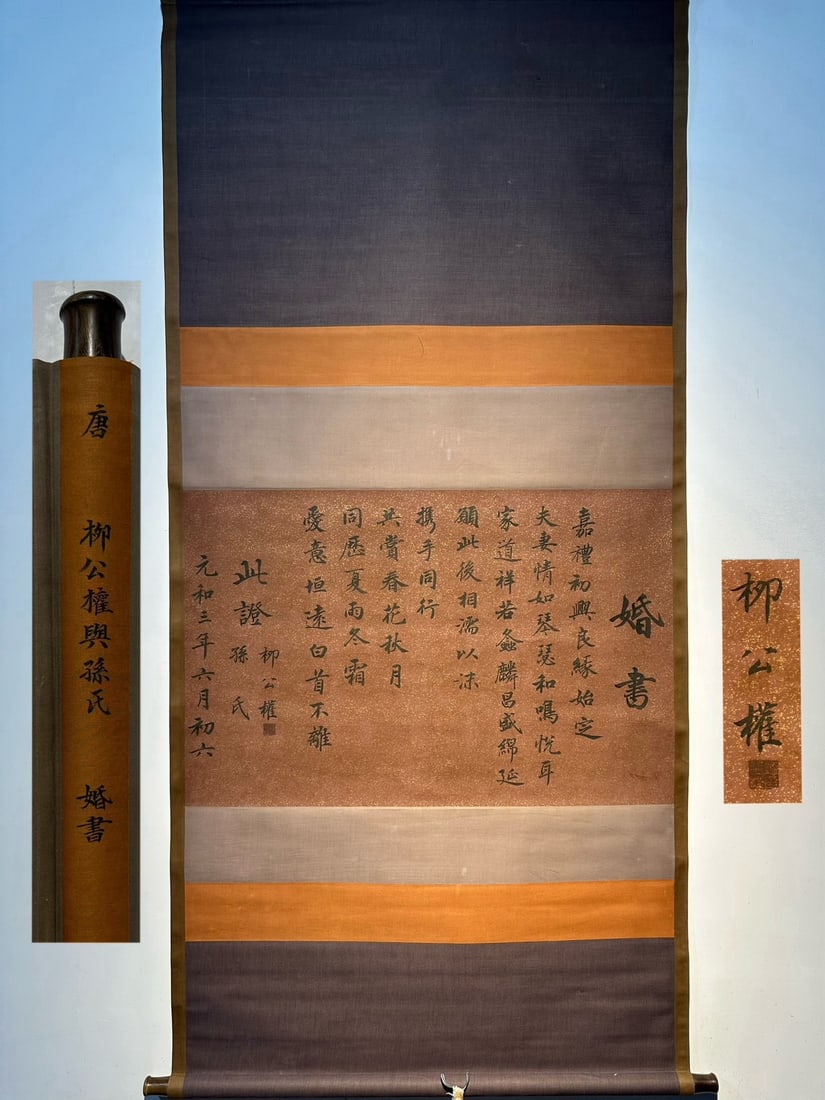 婚書
嘉禮初興良緣始定
夫妻情如琴瑟和鳴悅耳
家道祥若螽麟昌盛綿延
願此後相濡以沫
攜手同行
共賞春花秋月
同歷夏雨冬霜
愛意恒遠白首不離
此證
柳公權
孫氏
元和三年六月初六
唐 柳公權與孫氏 婚書
柳公權